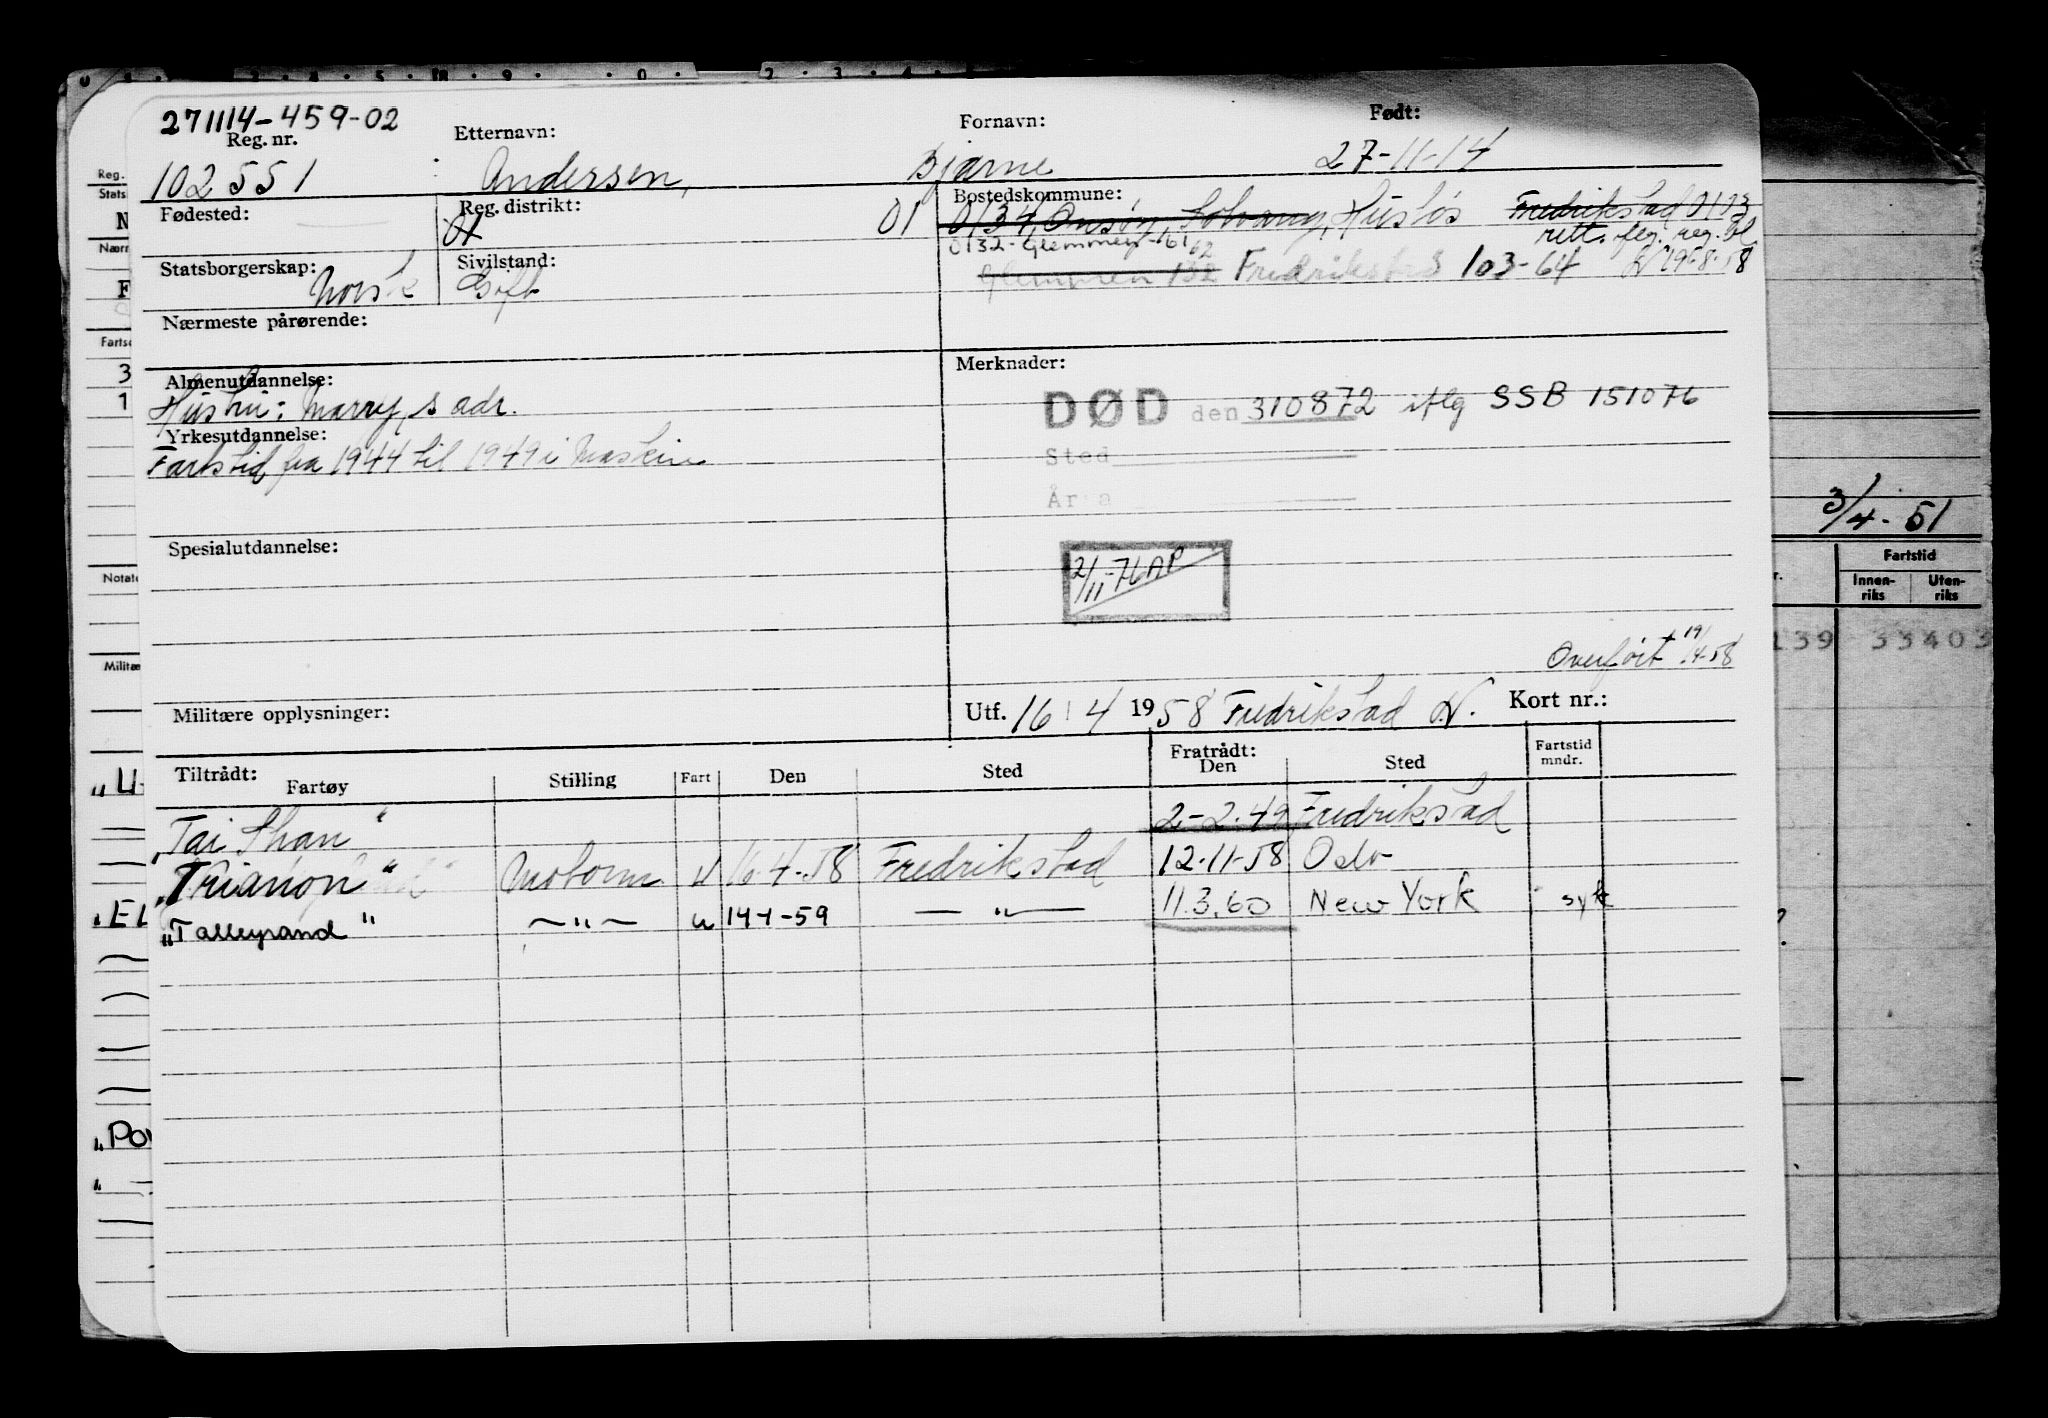 271114-459-02
Reg. nr. Etternavn: Fornavn: Født:
102551 Andersen, Bjarne 27-11-14
Fødested: Reg. distrikt: 01 Bostedskommune:
01 0134, Onsøy, Solvang, Husløs Fredrikstad 0103
rett. flg. reg. bl.
0132-Glemmen-161 62
Statsborgerskap: Sivilstand:
Norsk Gift Glemmen 132 Fredrikstad 103-64 19-8-58
Nærmeste pårørende:
Almenutdannelse: Merknader:
Hustru: Marry, s adr. DØD den 310872 iflg SSB 151076
Yrkesutdannelse:
Fartstid fra 1944 til 1949 i Maskin Sted
År a
Spesialutdannelse:
2/11-76 AP
Overført 19/4-58
Militære opplysninger: Utf. 16 4 1958 Fredrikstad Kort nr.:
Tiltrådt: Fartøy Stilling Fart Den Sted Fratrådt: Den Sted Fartstid mndr.
"Tai Shan" 2-2-49 Fredrikstad
"Trianon" Motorm U 16-4-58 Fredrikstad 12-11-58 Oslo
"Talleyrand" — " — u 14-1-59 — " — 11.3.60 New York syk
Reg.
Stats
N
Nærm
F
Fartso
3
1
Notate
Militæ
"U
"EL
"Pow
"
3/4-51
Fartstid
r. Innenriks Utenriks
139 33403